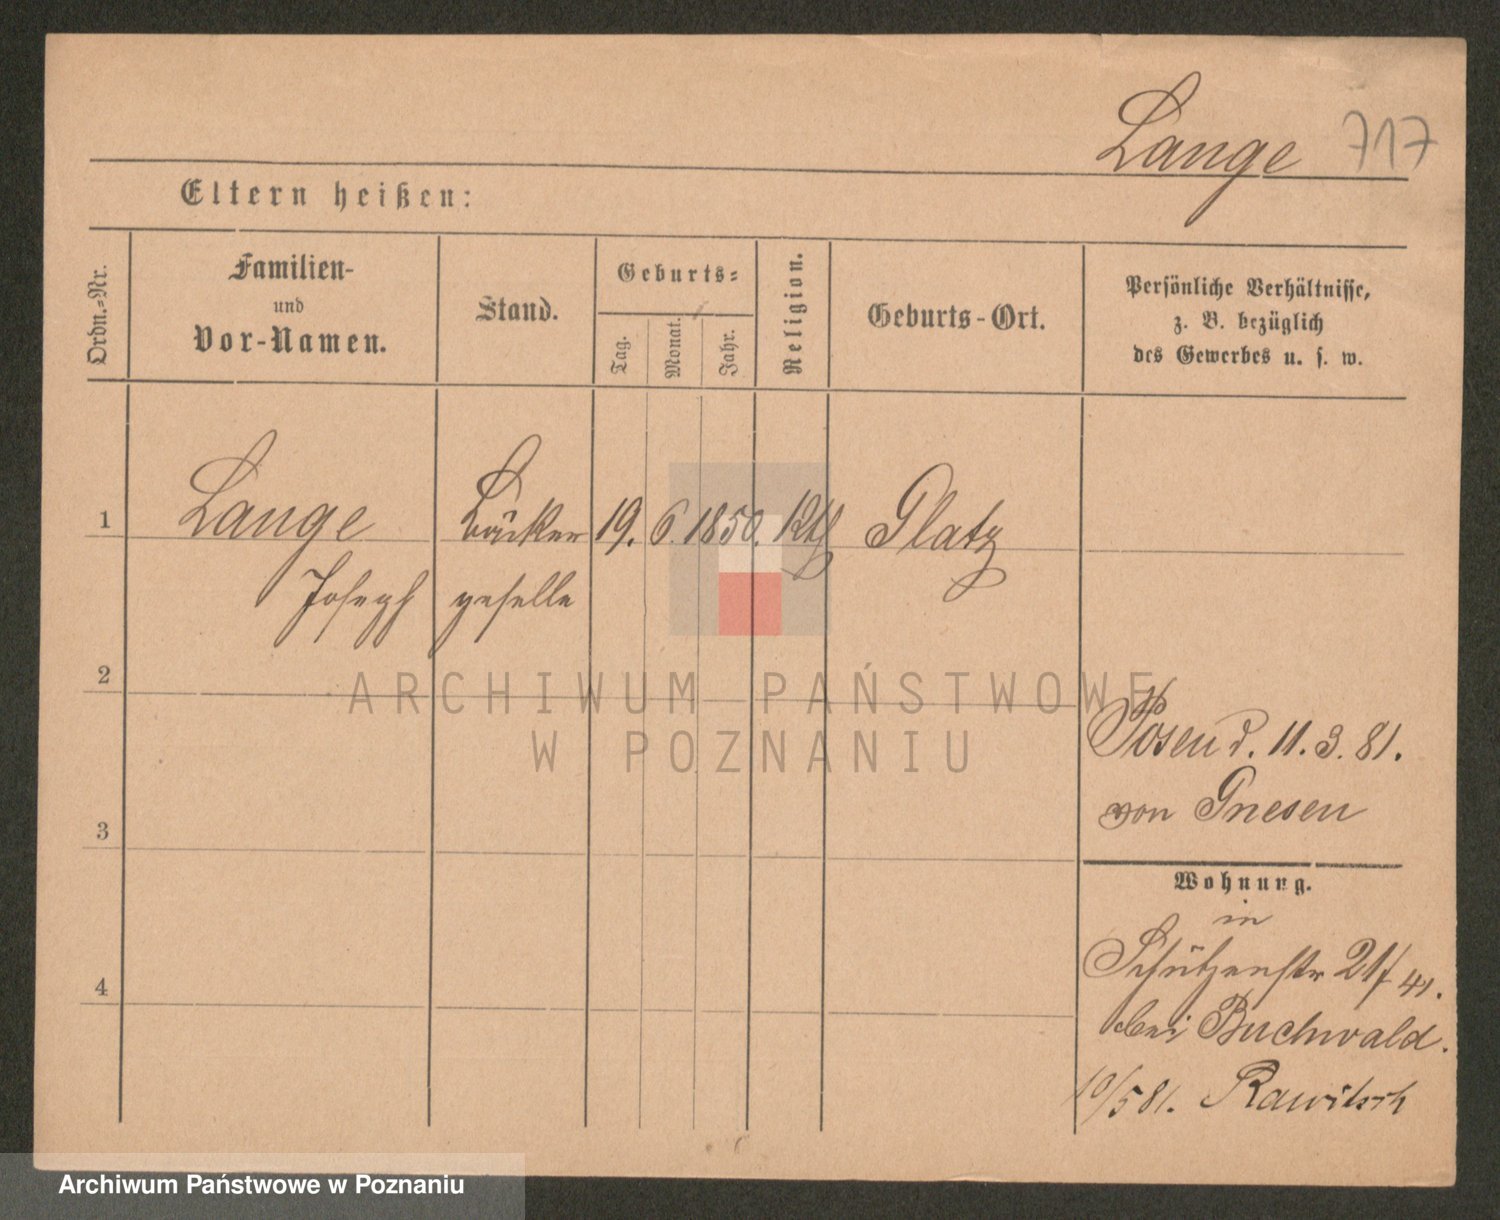 Lange 717
Eltern heißen:
Ordn.-Nr.
Familien-
und
Vor-Namen.
Stand.
Geburts-
Tag.
Monat.
Jahr.
Religion.
Geburts-Ort.
Persönliche Verhältnisse,
z. B. bezüglich
des Gewerbes u. s. w.
1 Lange Bäcker 19. 6. 1850. Kth Glatz
Joseph geselle
2
ARCHIWUM PAŃSTWOWE
W POZNANIU
Posen d. 11.3.81.
von Gnesen
3
Wohnung.
in
Schützenstr 21/
4
bei Buchwald.
10/5 81. Rawitsch
Archiwum Państwowe w Poznaniu